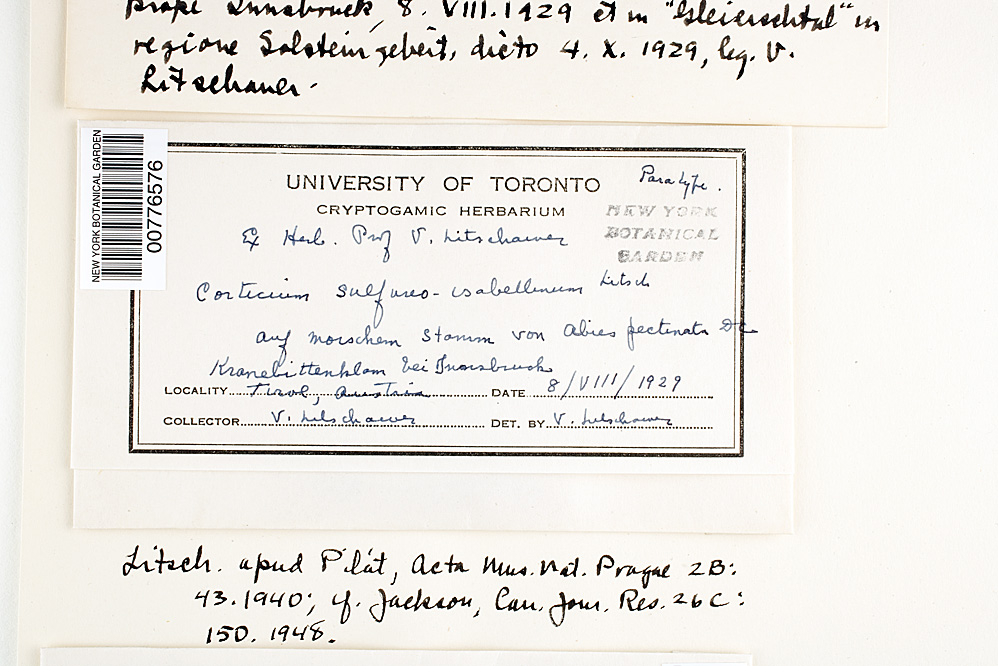 prope Innsbruck, 8. VIII. 1929 et in "Gleierschtal" in
regione Solsteingebeit, dicto 4. X. 1929, leg. V.
Litschauer.
NEW YORK BOTANICAL GARDEN
00776576
UNIVERSITY OF TORONTO
Paratype.
CRYPTOGAMIC HERBARIUM
NEW YORK
BOTANICAL
GARDEN
Ex Herb. Prof V. Litschauer
Corticium sulfureo-isabellinum Litsch
auf morschem Stamm von Abies pectinata DC
Kranebittenklam bei Innsbruck
LOCALITY Tirol, Austria DATE 8/VIII/1929
COLLECTOR V. Litschauer DET. BY V. Litschauer
Litsch. apud Pilát, Acta Mus. Nat. Prague 2B:
43. 1940; cf. Jackson, Can. Jour. Res. 26C:
150. 1948.